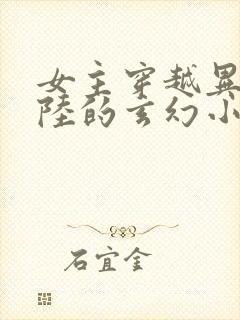 女主穿越異
陸的玄幻小
石宜金